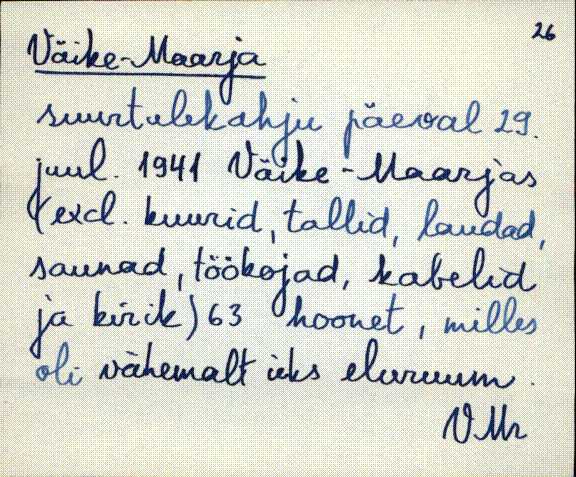 26
Väike-Maarja
suurtulekahju päeval 29.
juul. 1941 Väike-Maarjas
(excl. kuurid, tallid, laudad,
saunad, töökojad, kabelid
ja kirik) 63 hoonet, milles
oli vähemalt üks eluruum.
VMr